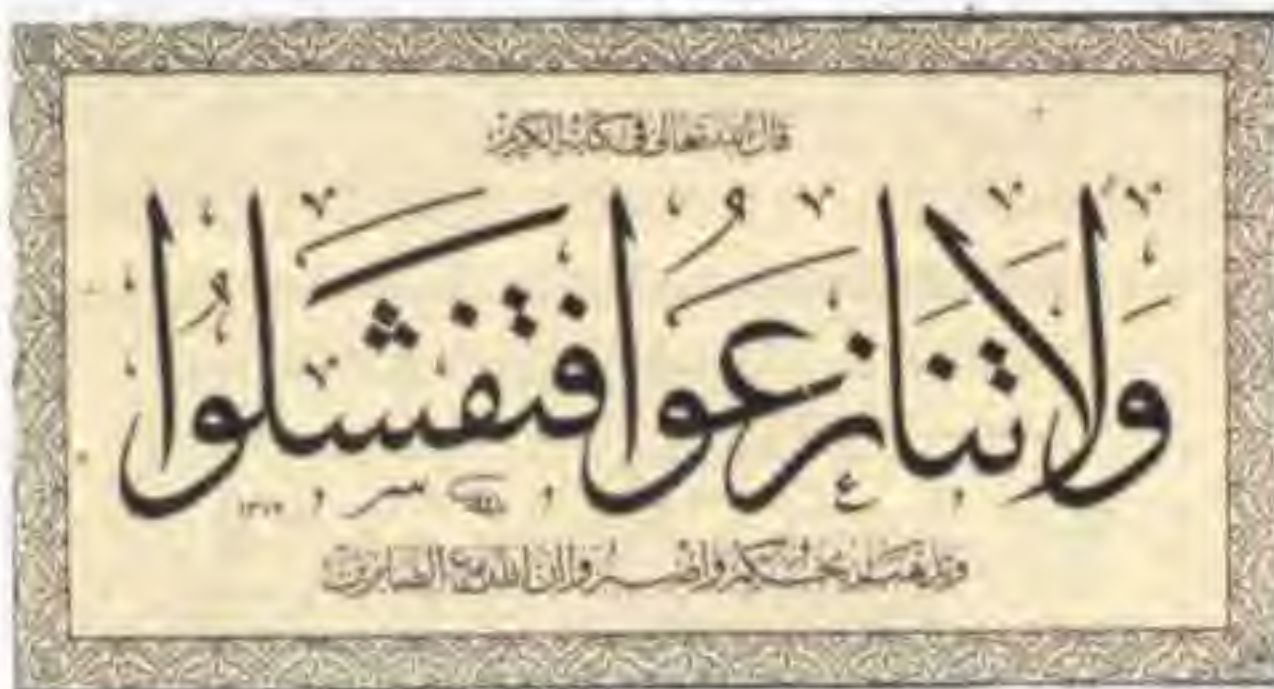 قال الله تعالى في كتابه الكريم
وَلَا تَنَازَعُوا فَتَفْشَلُوا
١٣٧٢
وتذهب ريحكم واصبروا إن الله مع الصابرين